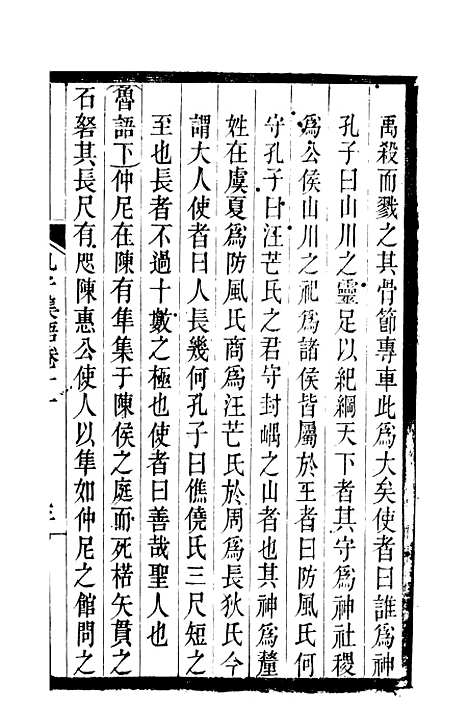 禹殺而戮之其骨節專車此爲大矣使者曰誰爲神
孔子曰山川之靈足以紀綱天下者其守爲神社稷
爲公侯山川之祀爲諸侯皆屬於王者曰防風氏何
守孔子曰汪芒氏之君守封嵎之山者也其神爲釐
姓在虞夏爲防風氏商爲汪芒氏於周爲長狄氏今
謂大人使者曰人長幾何孔子曰僬僥氏三尺短之
至也長者不過十數之極也使者曰善哉聖人也
魯語下仲尼在陳有隼集于陳侯之庭而死楛矢貫之
石砮其長尺有咫陳惠公使人以隼如仲尼之館問之
孔子集語卷十